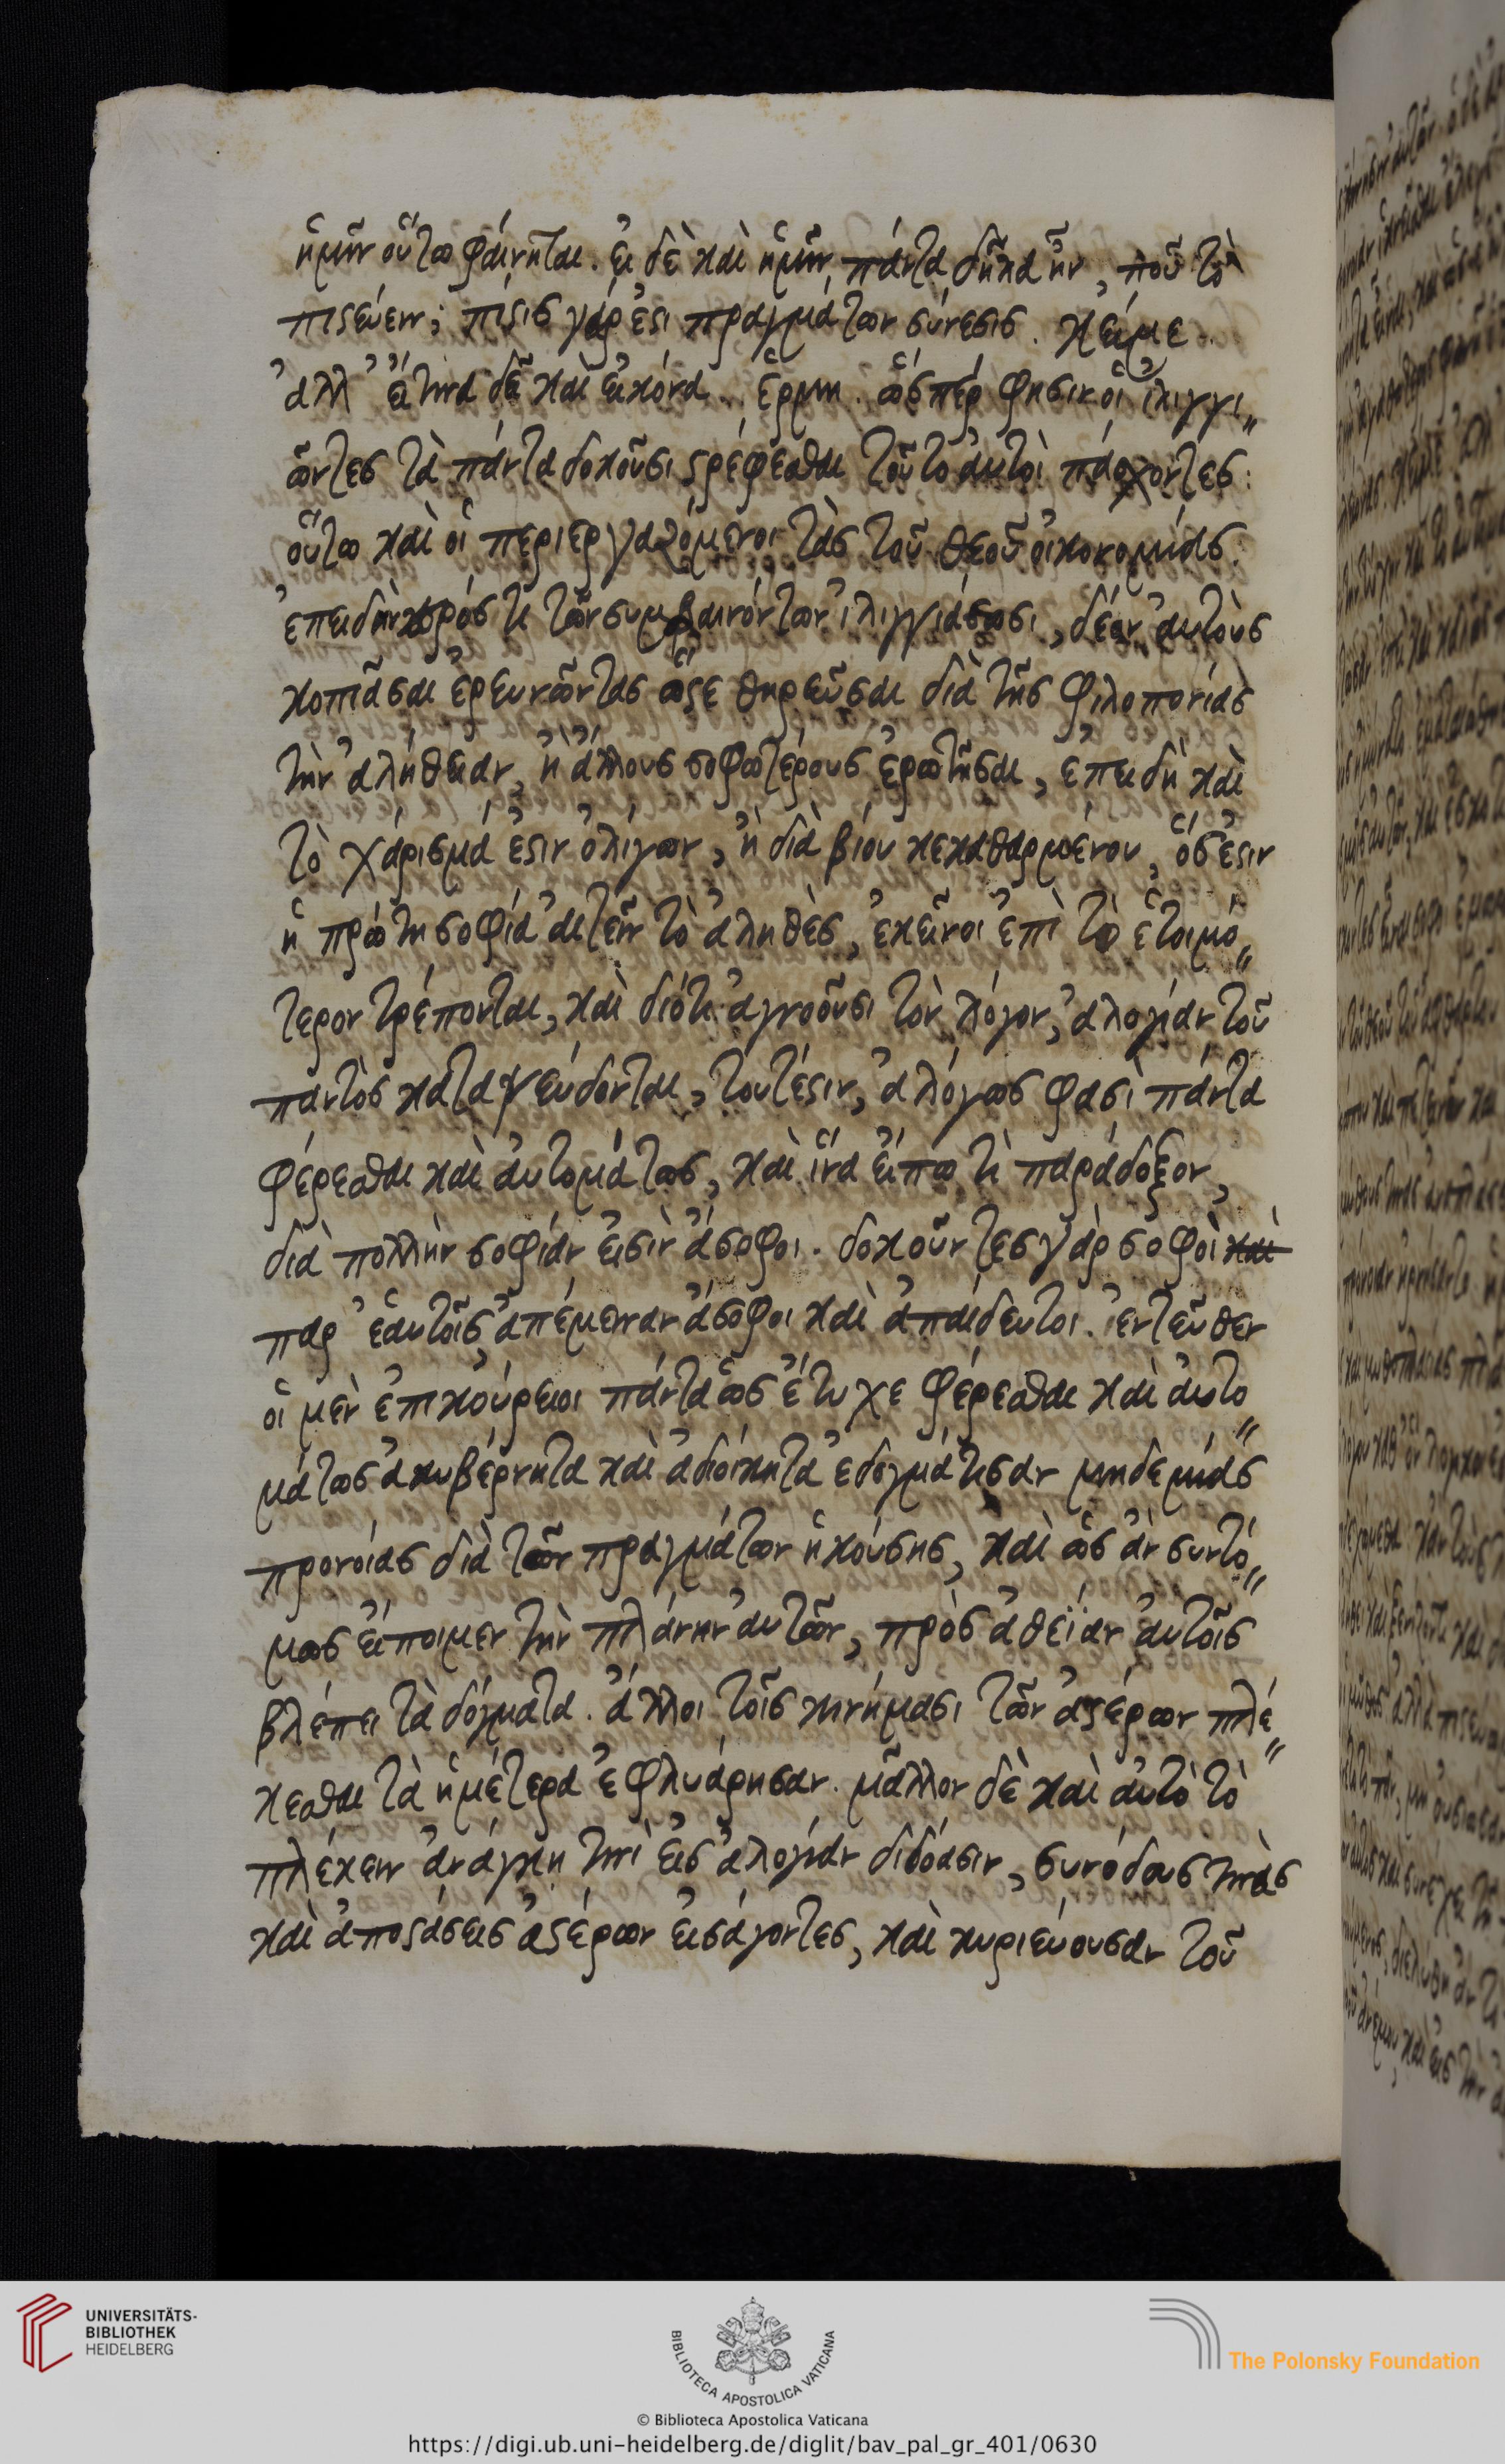 ἡμῖν οὕτω φαίνηται. εἰ δὲ καὶ ἡμῖν πάντα δῆλα ἦν, ποῦ τὸ
πιστεύειν; πίστις γάρ ἐστι πραγμάτων σύνεσις. κείμε.
ἀλλ' εἴ τινα δεῖ καὶ εἰκόνα. ἑρμη. ὥσπέρ φησιν οἱ ἰλιγγι„
ῶντες τὰ πάντα δοκοῦσι στρέφεσθαι τοῦτο αὐτοὶ πάσχοντες:
οὕτω καὶ οἱ περιεργαζόμενοι τὰς τοῦ θεοῦ οἰκονομίας:
ἐπειδὰν πρός τι τῶν συμβαινόντων ἰλιγγιάσωσι, δέον αὐτοὺς
κοπιᾶσαι ἐρευνῶντας ὥστε θηρεῦσαι διὰ τῆς φιλοπονίας
τὴν ἀλήθειαν, ἢ ἄλλους σοφωτέρους ἐρωτῆσαι, ἐπειδὴ καὶ
τὸ χάρισμά ἐστιν ὀλίγων, ἢ διὰ βίου κεκαθαρμένου, ὅς ἐστιν
ἡ πρώτη σοφία αἰτεῖν τὸ ἀληθὲς, ἐκεῖνοι ἐπὶ τὸ ἑτοιμό„
τερον τρέπονται, καὶ διότι ἀγνοοῦσι τὸν λόγον, ἀλογίαν τοῦ
παντὸς καταψεύδονται, τουτέστιν, ἀλόγως φασὶ πάντα
φέρεσθαι καὶ αὐτομάτως, καὶ ἵνα εἴπω τι παράδοξον,
διὰ πολλὴν σοφίαν εἰσὶν ἄσοφοι. δοκοῦντες γὰρ σοφοὶ καὶ
παρ' ἑαυτοῖς ἀπέμειναν ἄσοφοι καὶ ἀπαίδευτοι. ἐντεῦθεν
οἱ μὲν ἐπικούρειοι πάντα ὡς ἔτυχε φέρεσθαι καὶ αὐτο„
μάτως ἀκυβέρνητα καὶ ἀδιοίκητα ἐδογμάτισαν μηδεμιᾶς
προνοίας διὰ τῶν πραγμάτων ἡκούσης, καὶ ὡς ἂν συντό„
μως εἴποιμεν τὴν πλάνην αὐτῶν, πρὸς ἀθεΐαν αὐτοῖς
βλέπει τὰ δόγματα. ἄλλοι τοῖς κινήμασι τῶν ἀστέρων πλέ„
κεσθαι τὰ ἡμέτερα ἐφλυάρησαν. μᾶλλον δὲ καὶ αὐτὸ τὸ
πλέκειν ἀνάγκη τινὶ εἰς ἀλογίαν διδόασιν, συνόδους τινὰς
καὶ ἀποστάσεις ἀστέρων εἰσάγοντες, καὶ κυριεύουσαν τοῦ
UNIVERSITÄTS-
BIBLIOTHEK
HEIDELBERG
BIBLIOTECA APOSTOLICA VATICANA
The Polonsky Foundation
© Biblioteca Apostolica Vaticana
https://digi.ub.uni-heidelberg.de/diglit/bav_pal_gr_401/0630